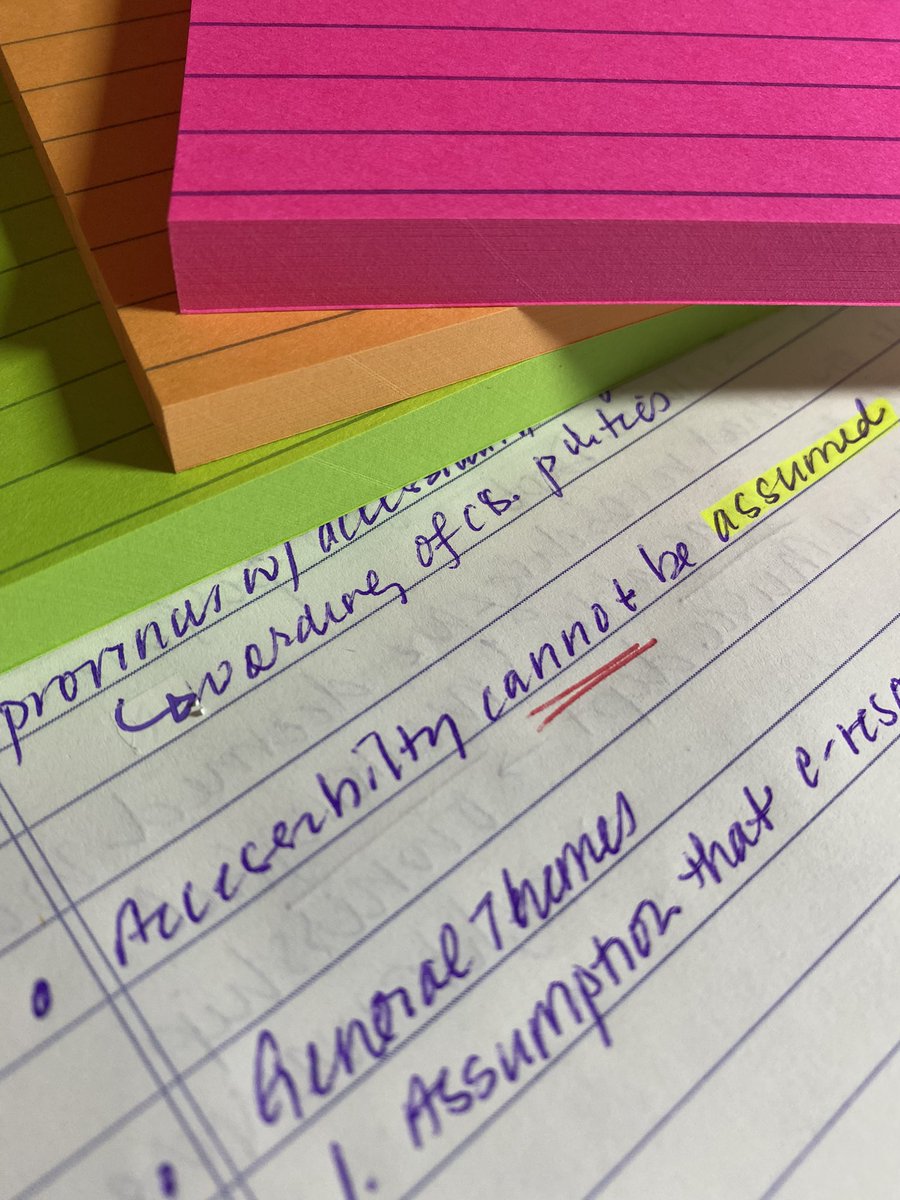 provinus w/
wording of cs. polities
Accessibilty cannot be assumed
General Themes
1. Assumption that e-res